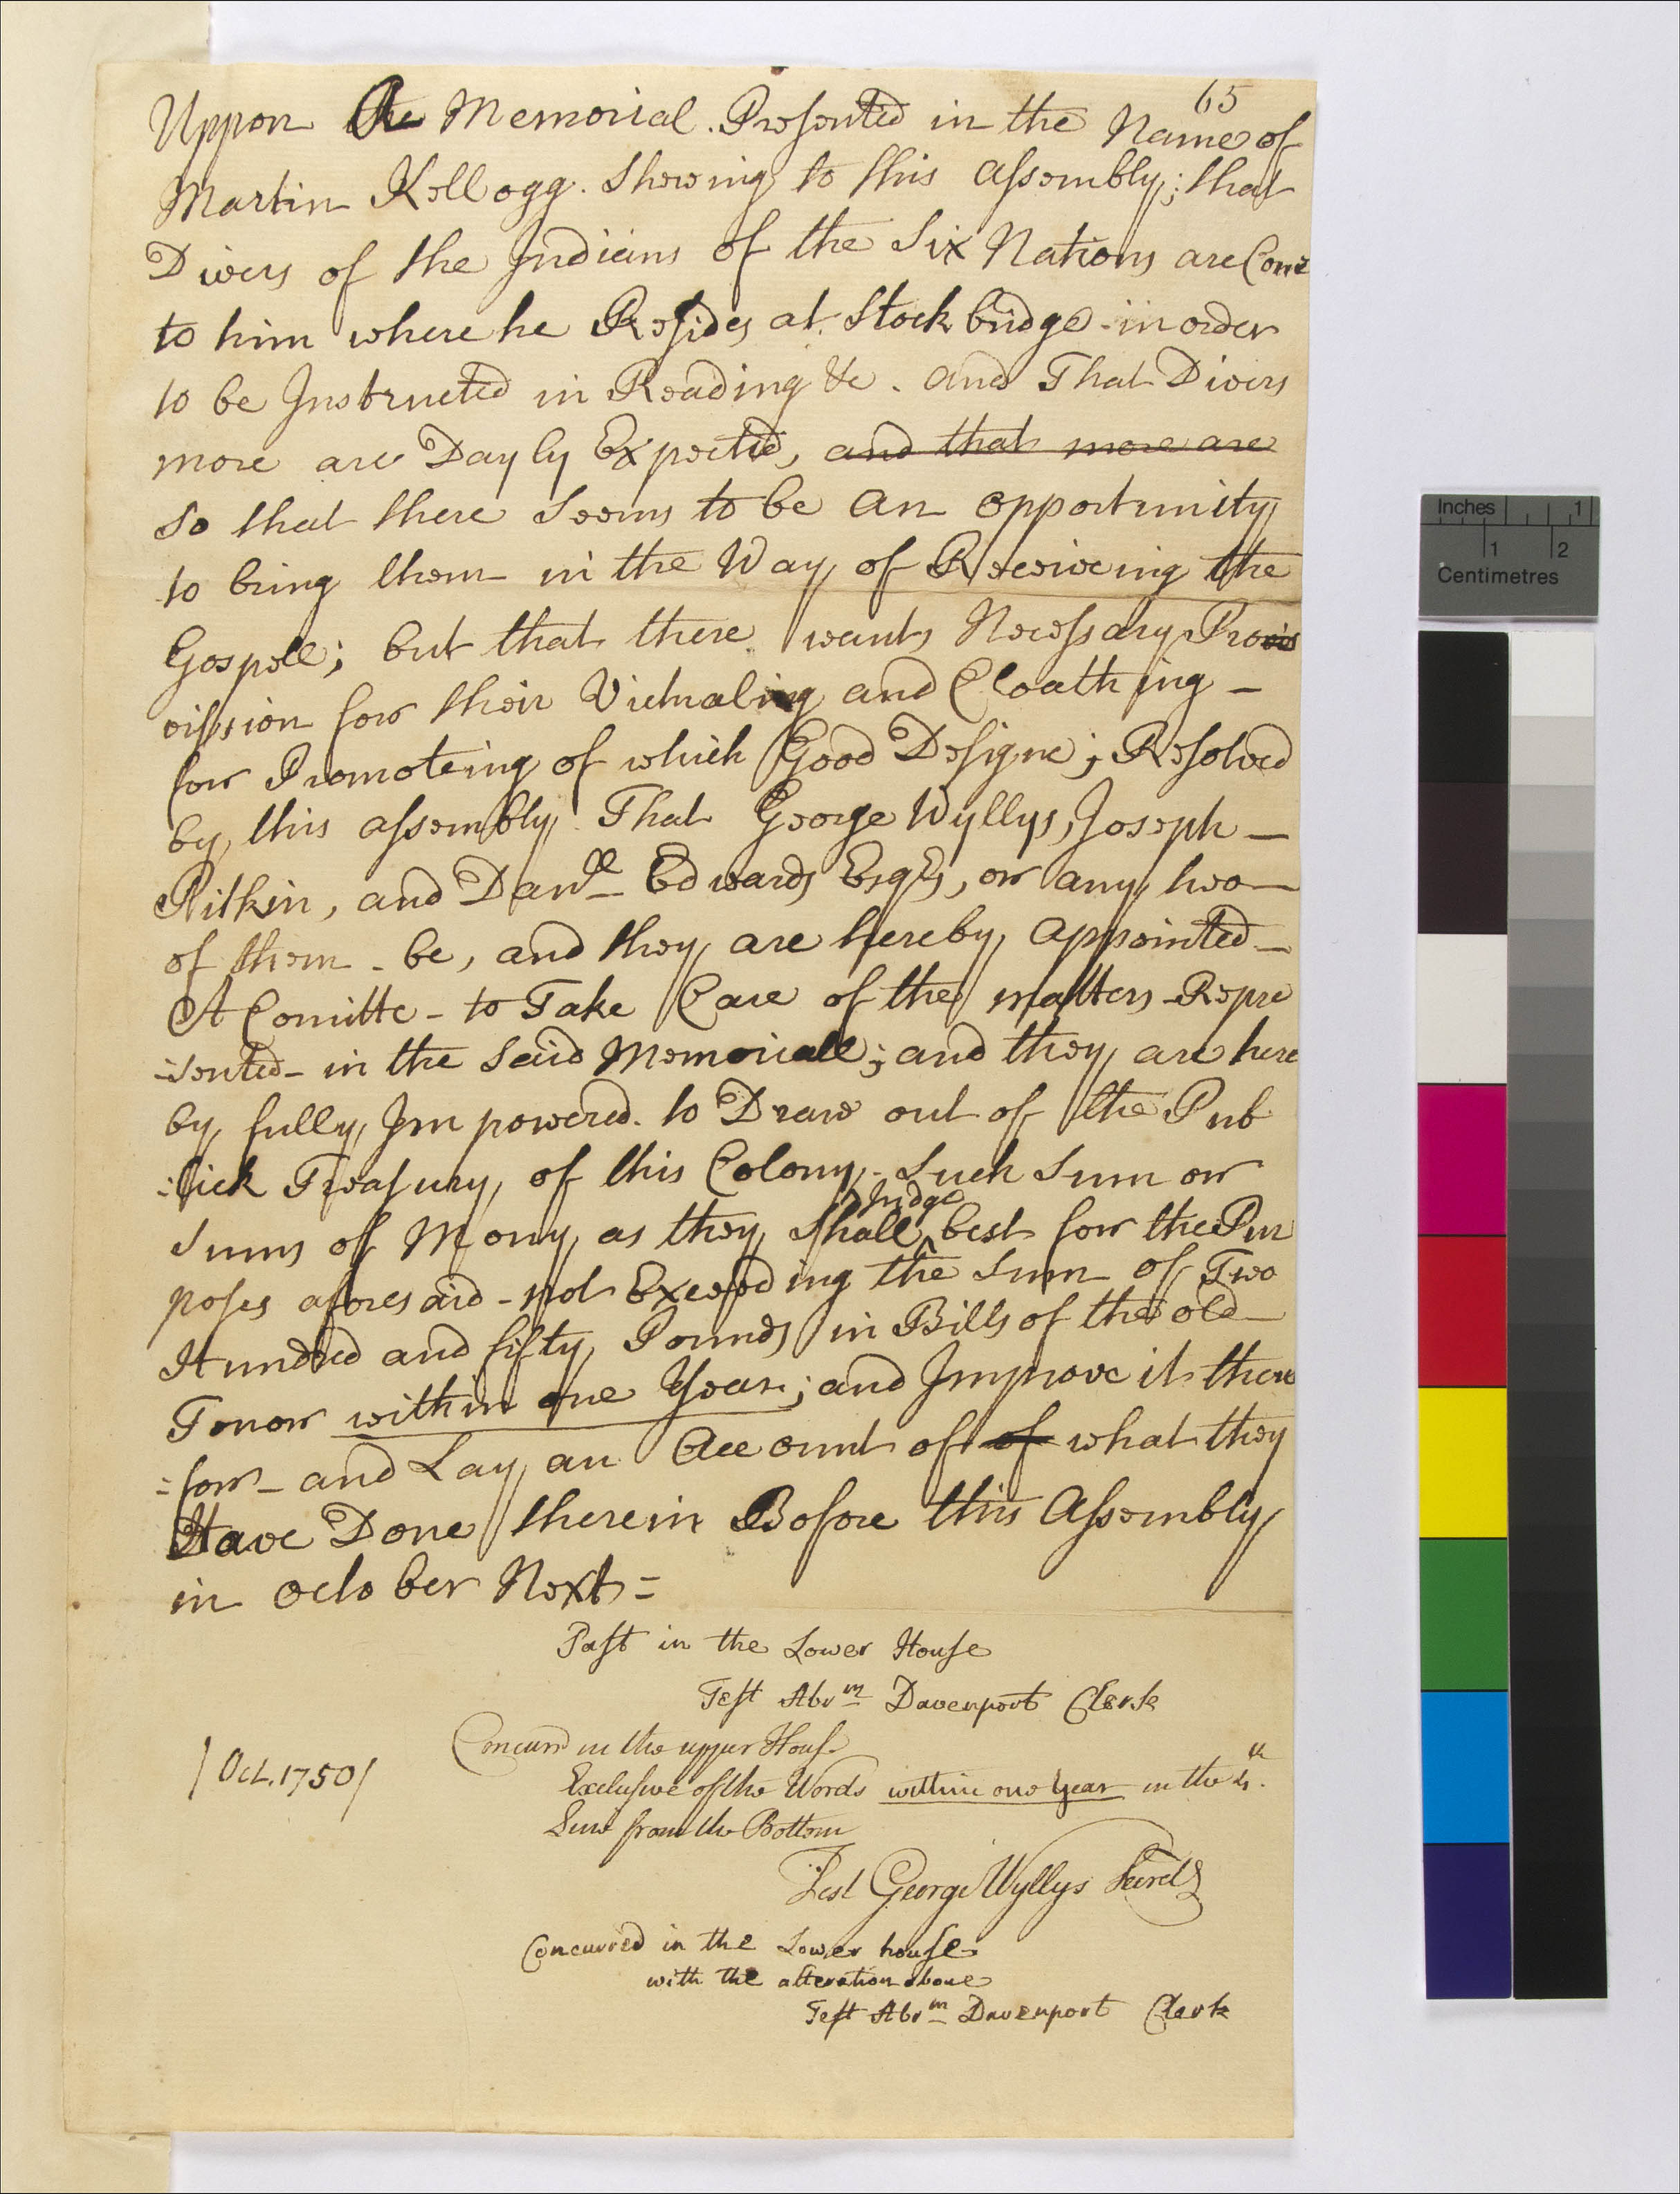 65
Uppon the Memorial Presented in the Name of
Martin Kellogg. Shewing to this assembly; that
Divers of the Indians of the Six Nations are Come
to him where he Resides at Stockbridge in order
to be Instructed in Reading &c. and That Divers
more are Dayly Expected, and that more are
so that there Seems to be an opportunity
to bring them in the Way of Receiveing the
Gospell; but that there wants Necessary Provis
vission for their Victualing and Cloathing -
for Promoteing of which Good Designe; Resolved
by this assembly That George Wyllys, Joseph -
Pitkin, and Danll Edwards Esqrs, or any two -
of them - be, and they are hereby appointed -
A Comitte - to Take Care of the matters Repre
-sented - in the said Memoriall; and they are here
by fully Impowered to Draw out of the Pub
-lick Treasury of this Colony - Such Sum or
Sums of Mony as they Shall Judge best for the Pur
poses aforesaid - not Exceeding the Sum of Two
Hundred and fifty Pounds in Bills of the old -
Tenor within one Year; and Improve it there
=for - and Lay an Account of of what they
Have Done therein Before this Assembly
in october Next =
Past in the Lower House
Test Abrm Davenport Clerk
Concurd in the upper House
Exclusive of the Words within one Year in the 4th
Line from the Bottom
Test George Wyllys Secrety
/ Oct. 1750 /
Concurred in the Lower house
with the alteration above
Test Abrm Davenport Clerk
Inches 1
1 2
Centimetres